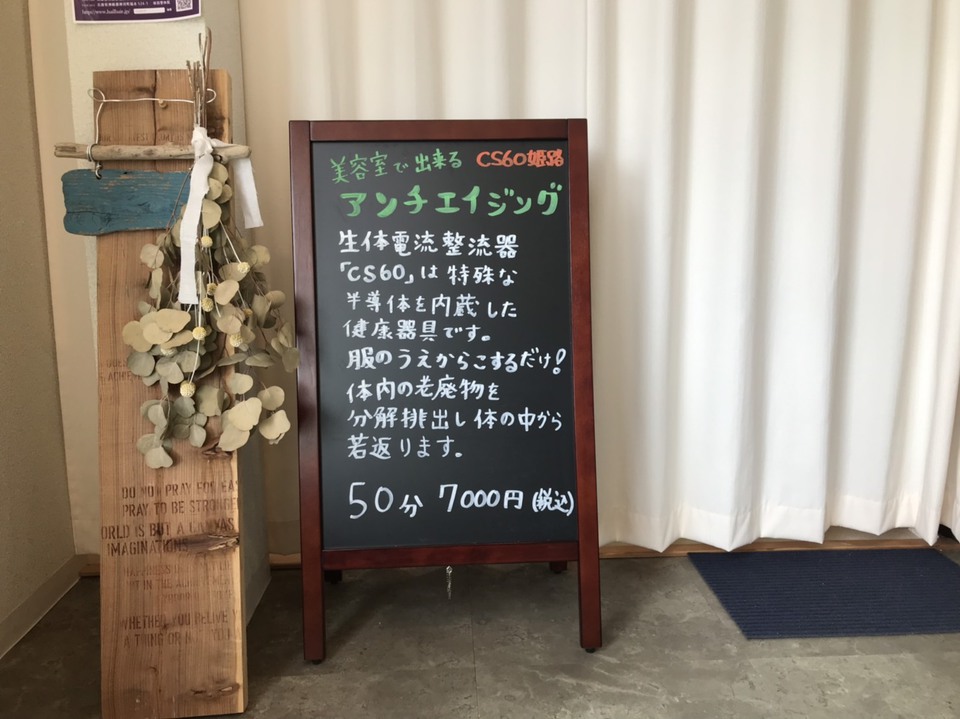 http://www.hailhair.jp/
美容室で出来る CS60姫路
アンチエイジング
生体電流整流器
「CS60」は特殊な
半導体を内蔵した
健康器具です。
服のうえからこするだけ!
体内の老廃物を
分解排出し体の中から
若返ります。
50分 7000円(税込)
DO NO PRAY FOR EAS
PRAY TO BE STRONGE
ORLD IS BUT A CANVAS
IMAGINATIONS
WHETHER YOU BELIVE Y
A THING OR N